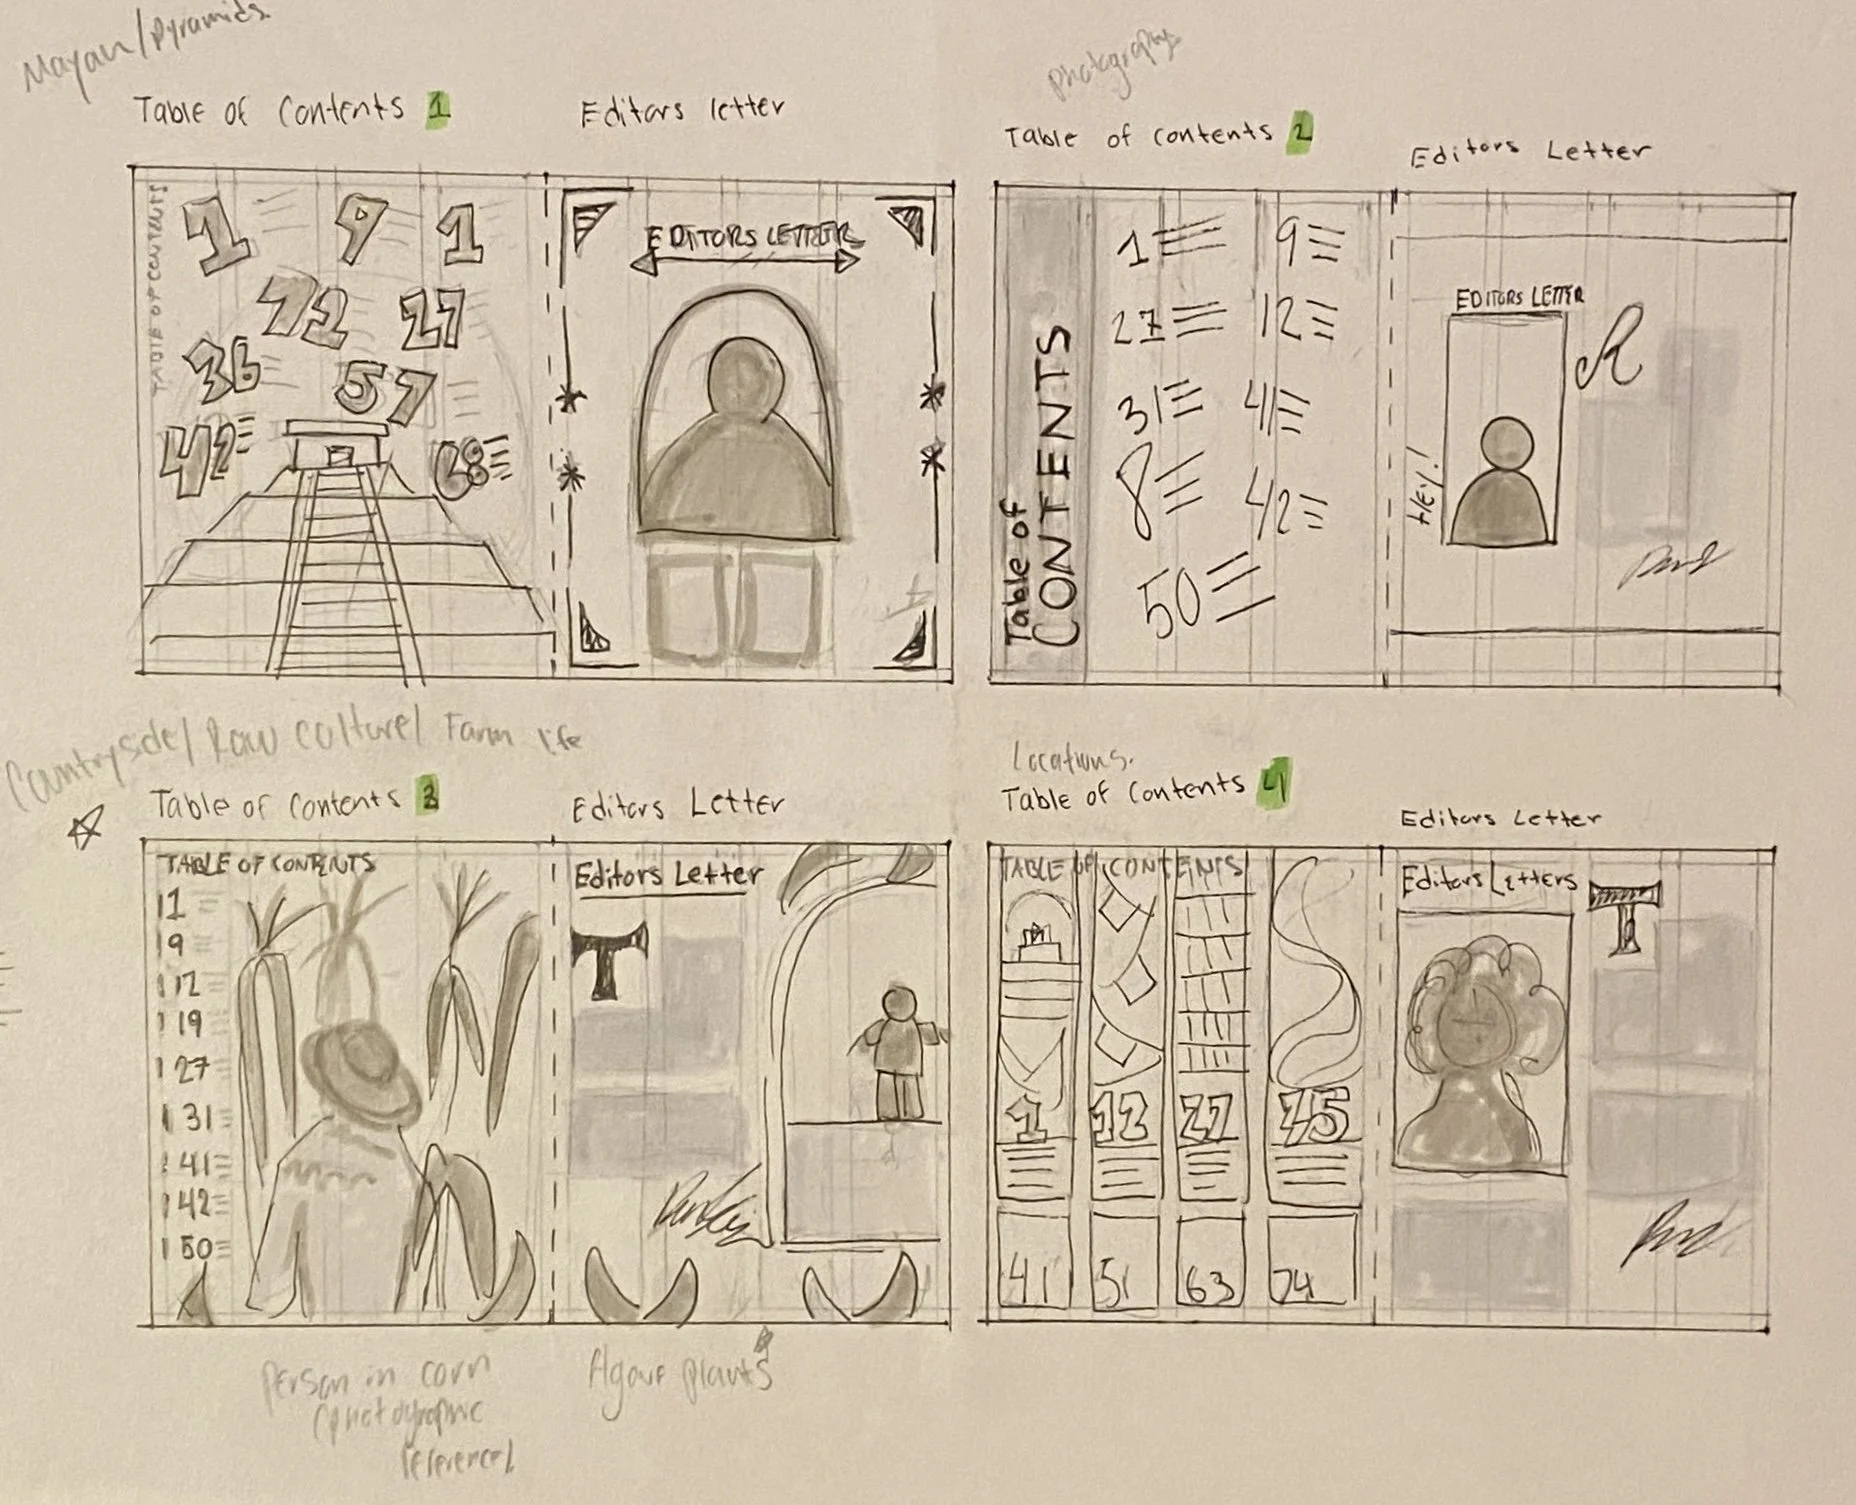 Mayan/Pyramids
Table of Contents 1
Editors letter
TABLE OF CONTENTS
1 9 1
12 27
36 57
42 68
EDITORS LETTER
Photography
Table of contents 2
Editors Letter
Table of
CONTENTS
1 9
27 12
31 41
8 42
50
EDITORS LETTER
R
HEY!
Countryside/Raw culture/ Farm life
Table of Contents 3
Editors Letter
TABLE OF CONTENTS
1
9
12
19
27
31
41
42
50
Editors Letter
T
Person in corn
(photographic
reference)
Agave plants
Locations.
Table of Contents 4
Editors Letter
TABLE OF CONTENTS
1 12 27 35
41 51 63 74
Editors Letters
T